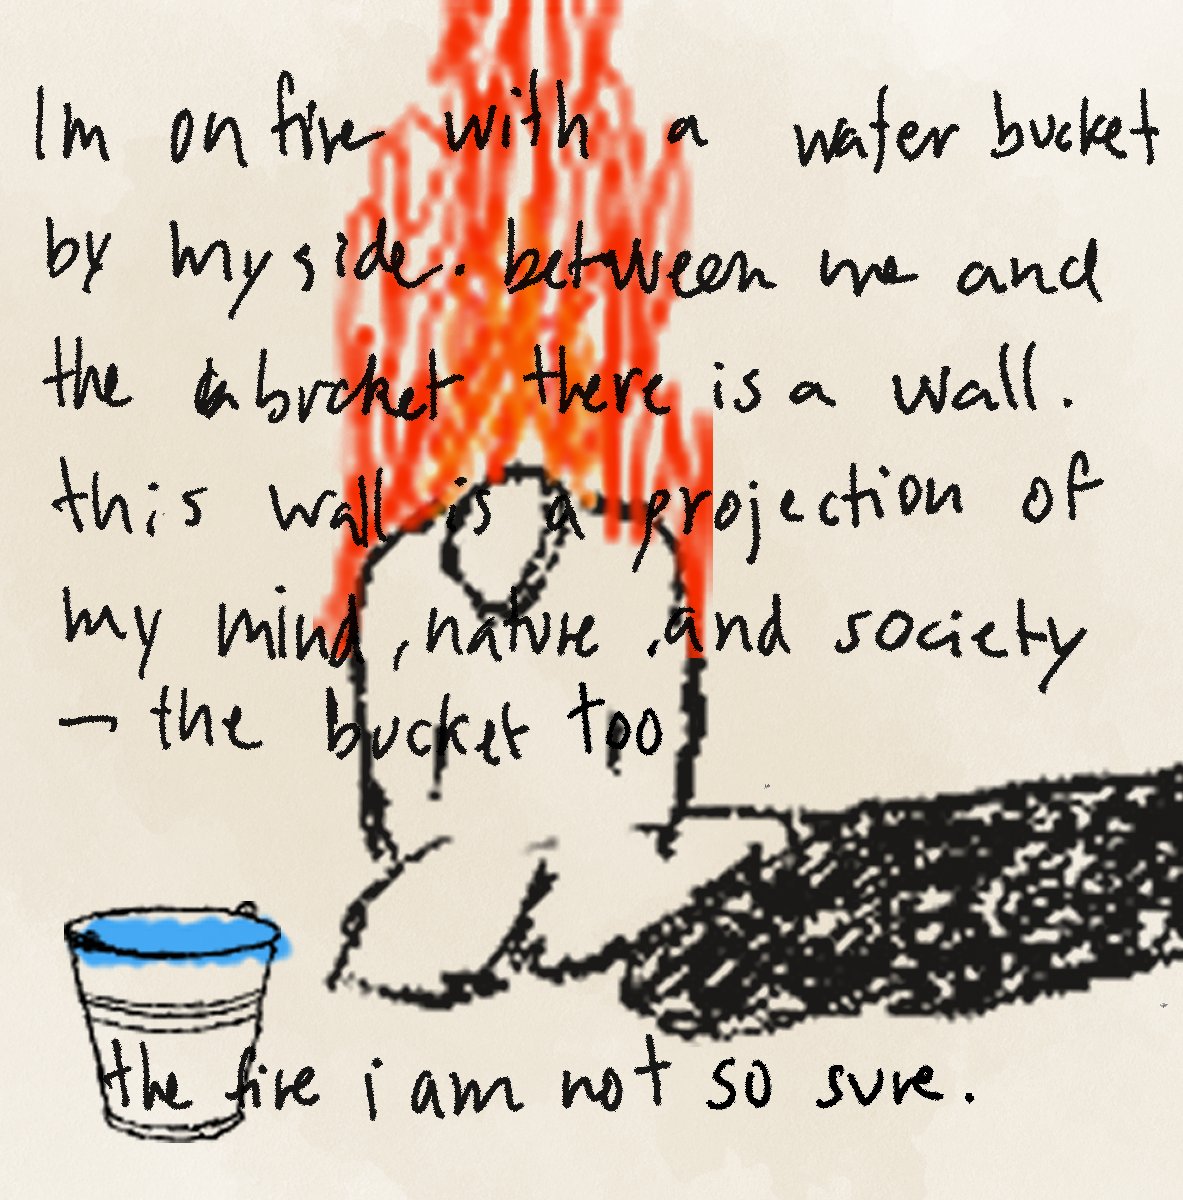 Im on fire with a water bucket
by my side. between me and
the a bucket there is a wall.
this wall is a projection of
my mind, nature, and society
- the bucket too
the fire i am not so sure.